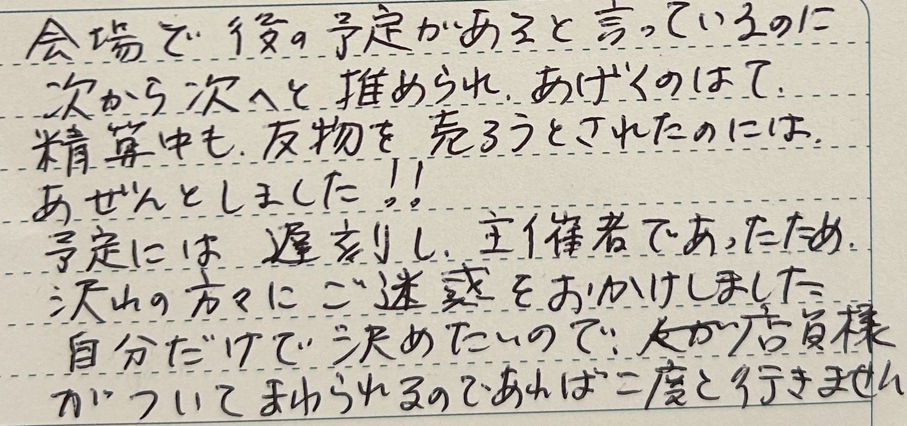 会場で後の予定があると言っているのに
次から次へと推められ、あげくのはて、
精算中も、反物を売ろうとされたのには、
あぜんとしました!!
予定には遅刻し、主催者であったため、
沢山の方々にご迷惑をおかけしました
自分だけで決めたいので、店員様
がついてまわられるのであれば二度と行きません